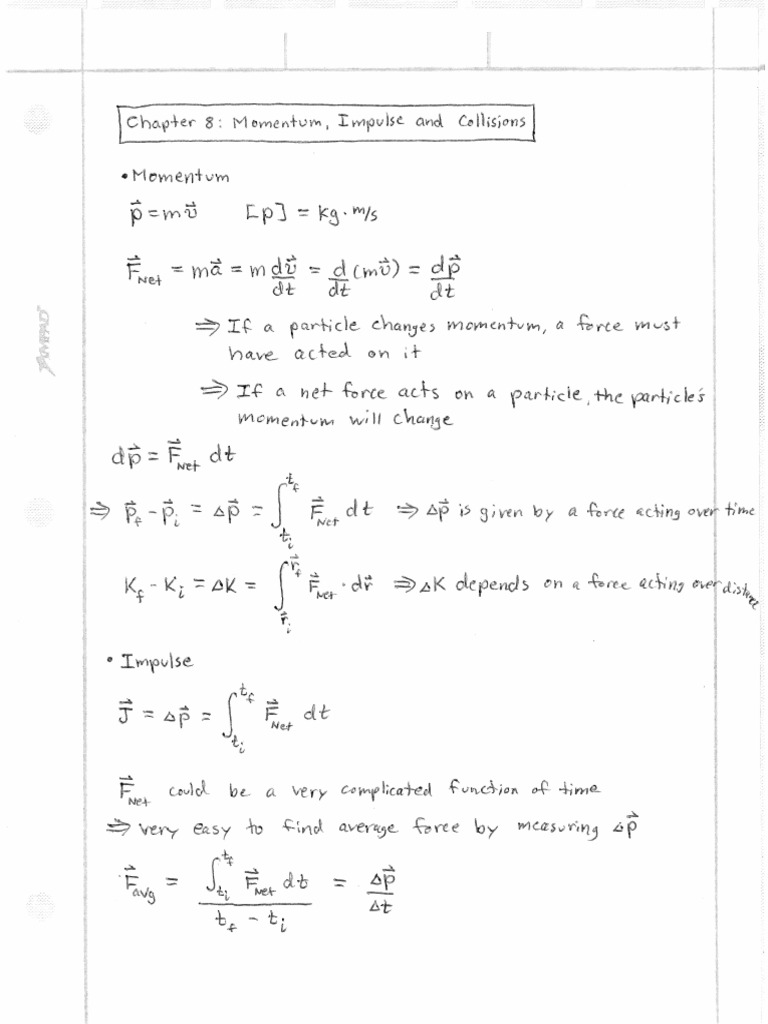 Chapter 8: Momentum, Impulse and Collisions
• Momentum
p⃗ = mv⃗   [p] = kg·m/s
F⃗_Net = ma⃗ = m dv⃗/dt = d/dt (mv⃗) = dp⃗/dt
⇒ If a particle changes momentum, a force must
have acted on it
⇒ If a net force acts on a particle, the particle's
momentum will change
dp⃗ = F⃗_Net dt
⇒ p⃗_f - p⃗_i = Δp⃗ = ∫_{t_i}^{t_f} F⃗_Net dt ⇒ Δp⃗ is given by a force acting over time
K_f - K_i = ΔK = ∫_{r⃗_i}^{r⃗_f} F⃗_Net · dr⃗ ⇒ ΔK depends on a force acting over distance
• Impulse
J⃗ = Δp⃗ = ∫_{t_i}^{t_f} F⃗_Net dt
F⃗_Net could be a very complicated function of time
⇒ very easy to find average force by measuring Δp⃗
F⃗_avg = ∫_{t_i}^{t_f} F⃗_Net dt / (t_f - t_i) = Δp⃗/Δt